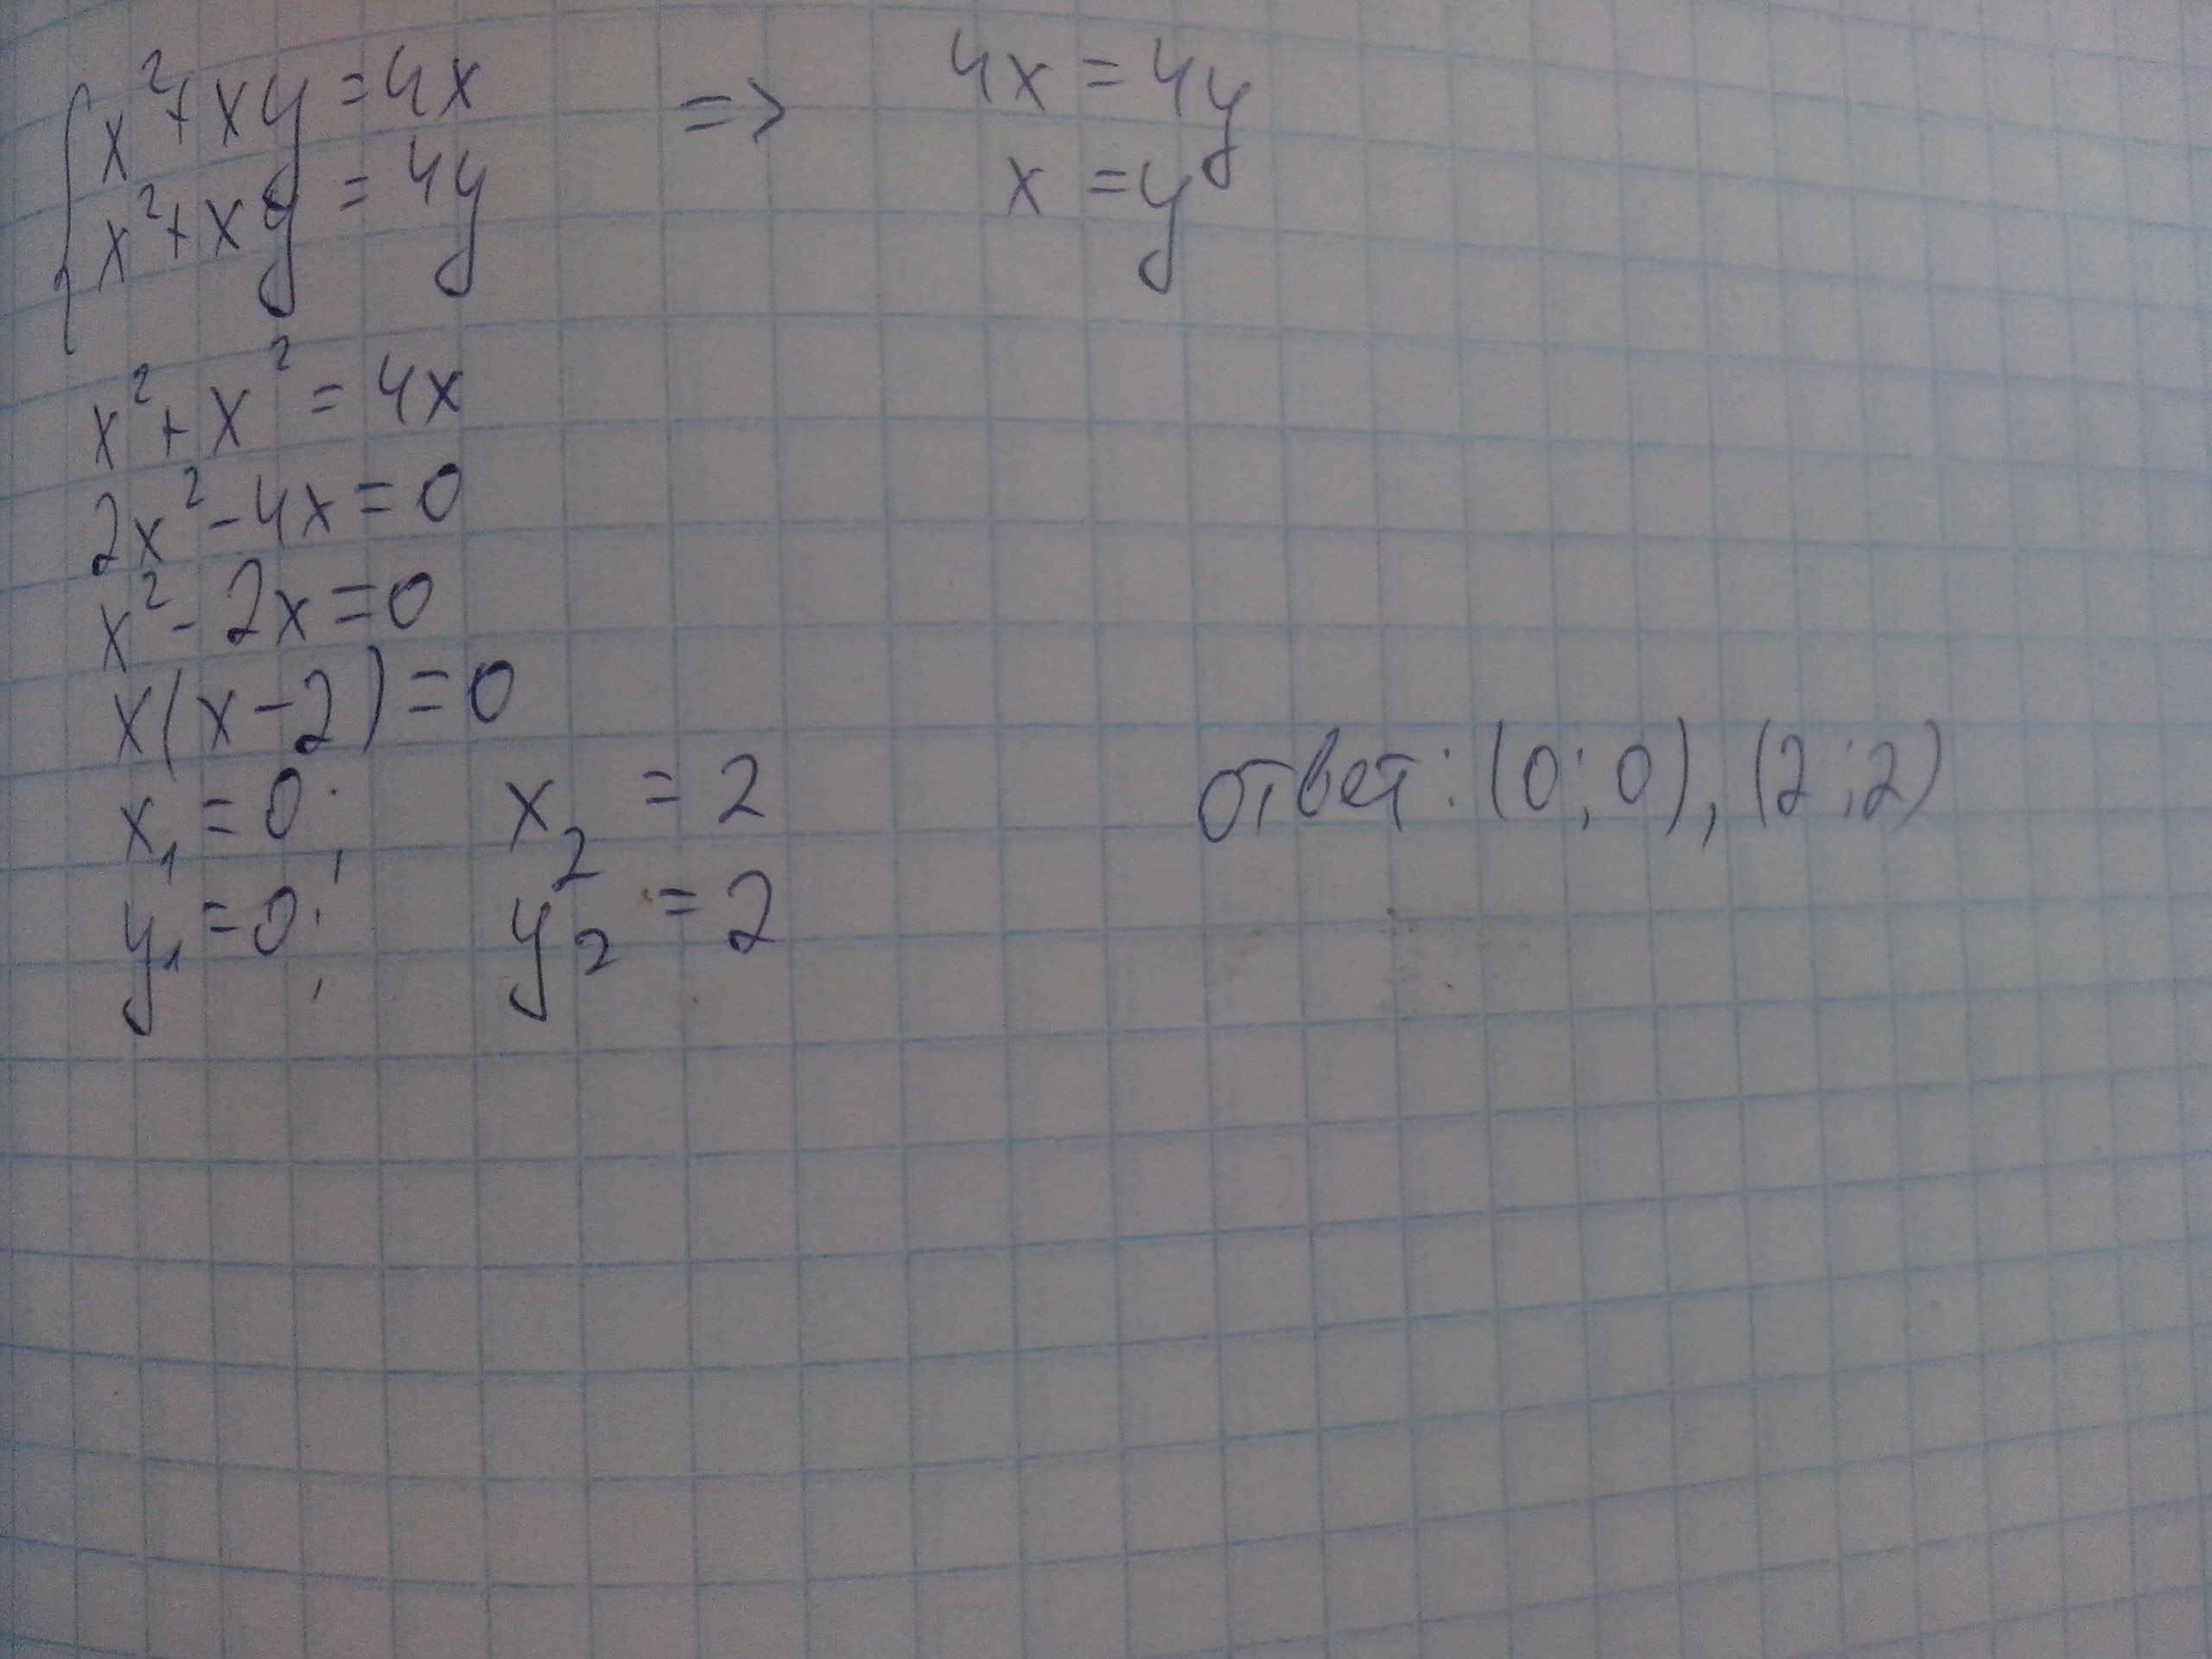 { x² + xy = 4x => 4x = 4y
x² + xy = 4y x = y
x² + x² = 4x
2x² - 4x = 0
x² - 2x = 0
x(x - 2) = 0
x₁ = 0; x₂ = 2
y₁ = 0; y₂ = 2
ответ: (0; 0), (2; 2)